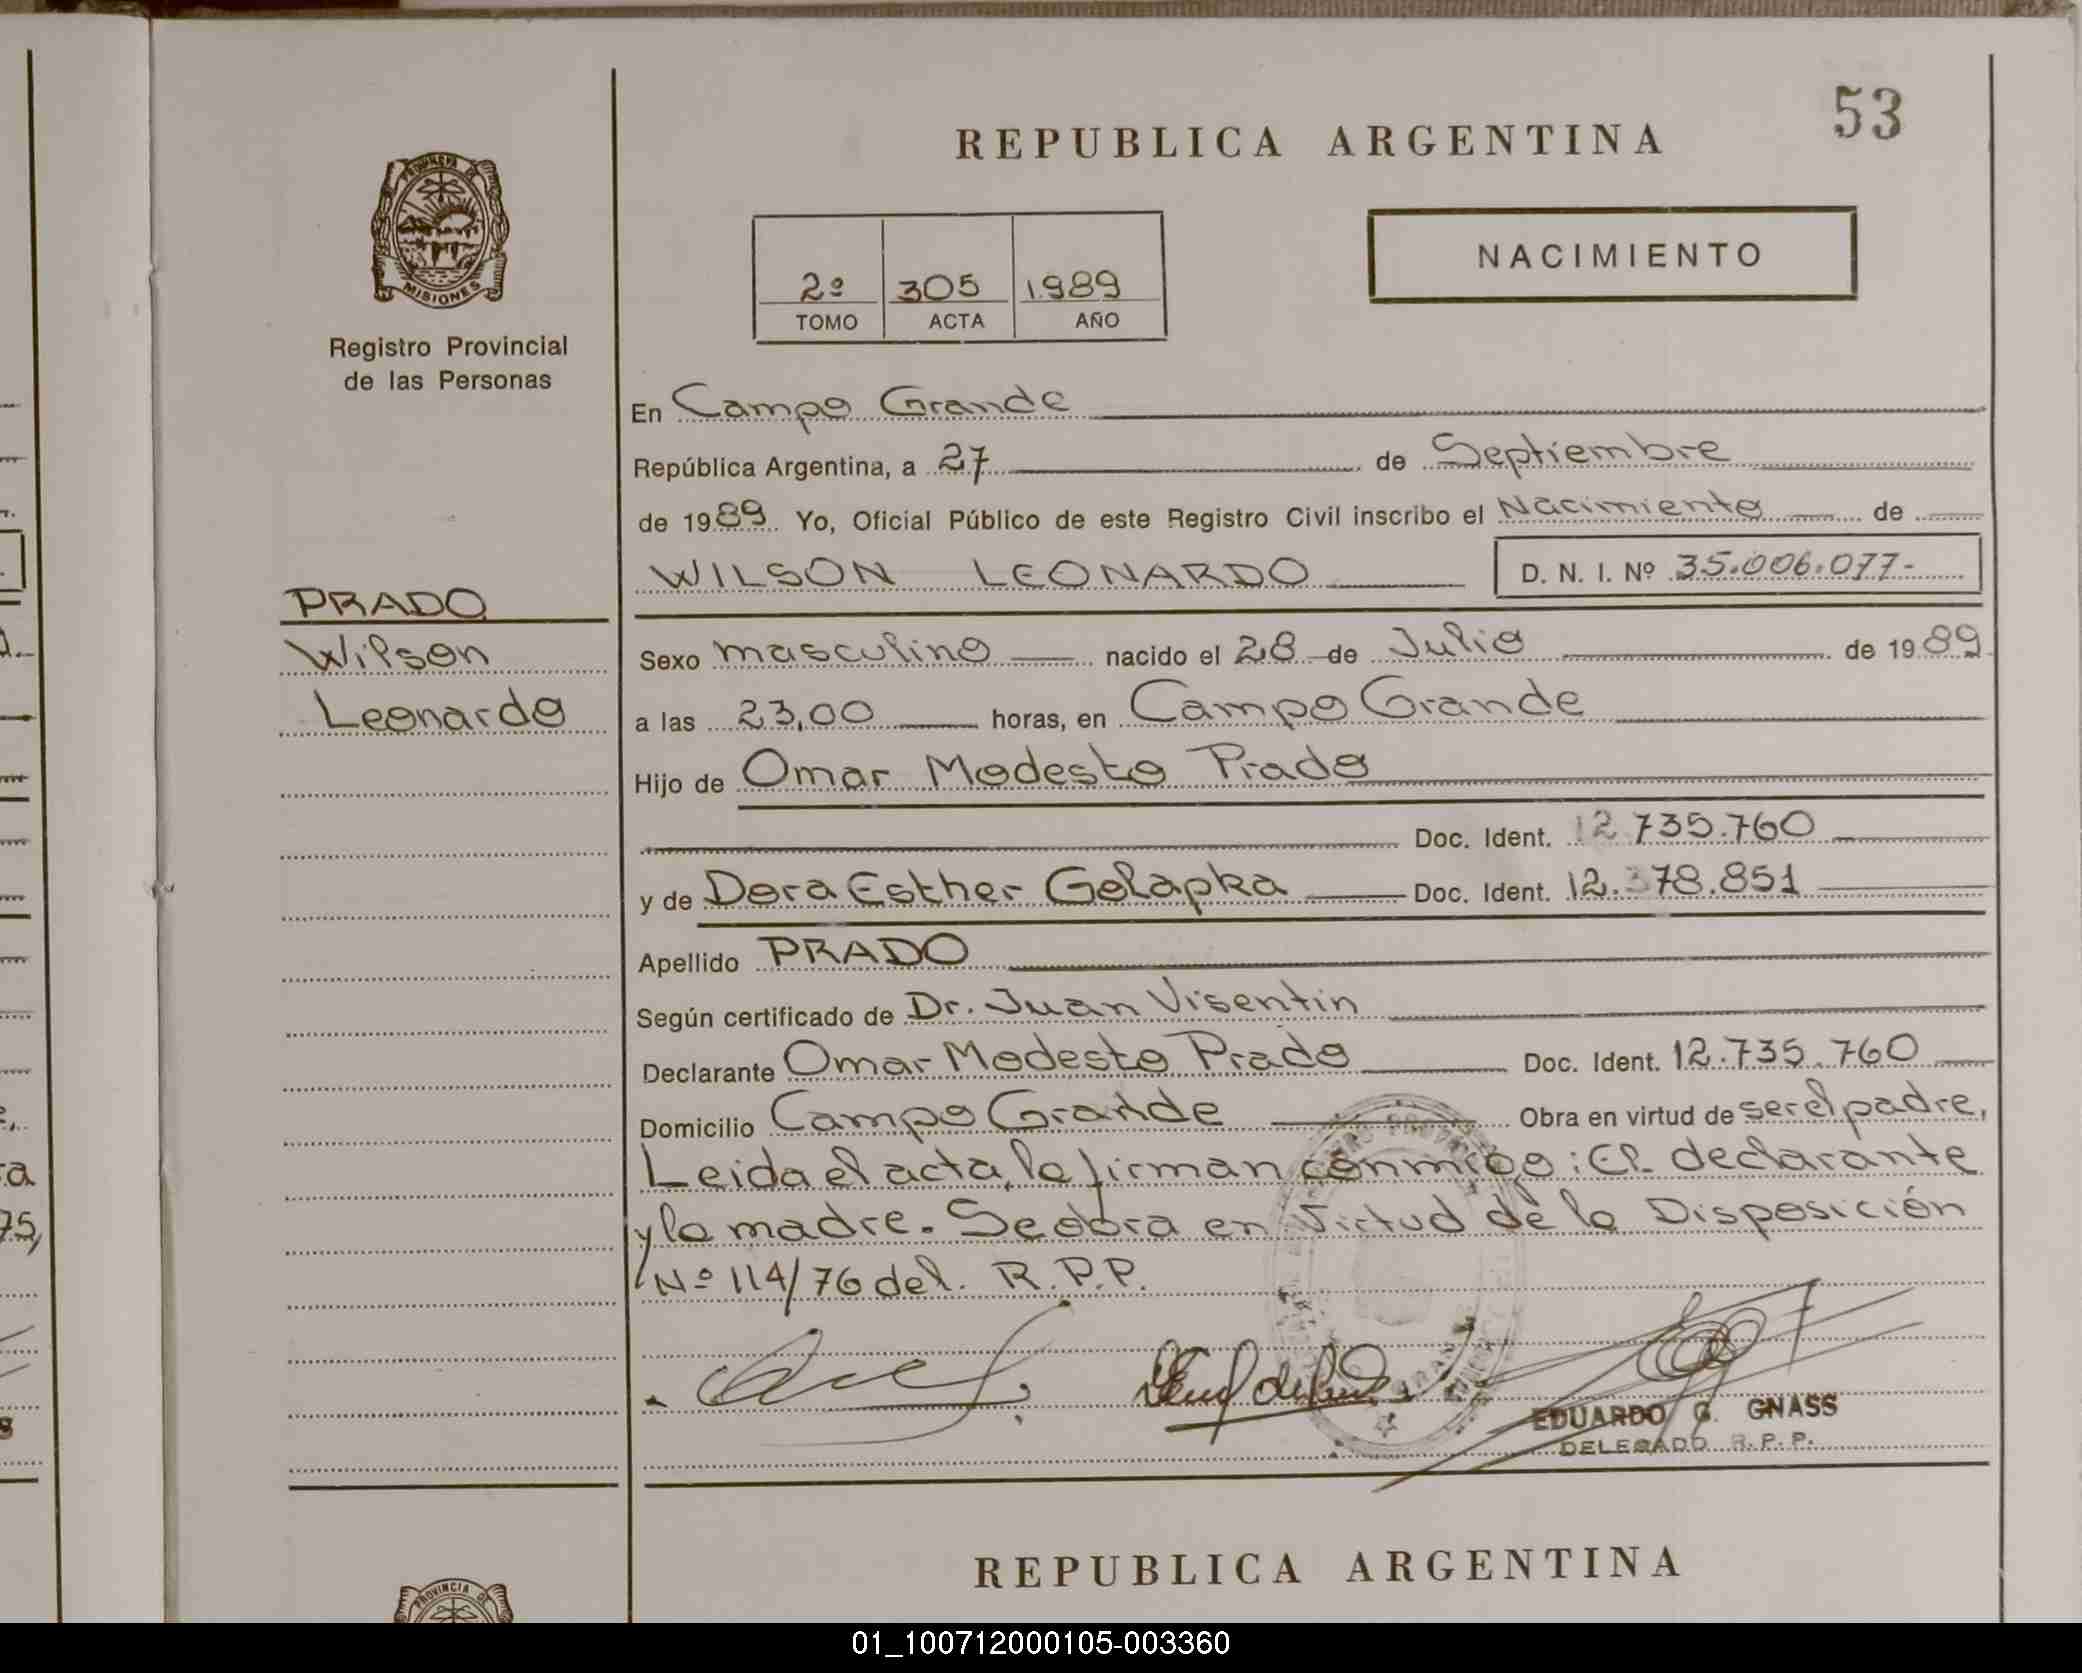 53
REPUBLICA ARGENTINA
PROVINCIA DE
MISIONES
Registro Provincial
de las Personas
2º 305 1989
TOMO ACTA AÑO
NACIMIENTO
En Campo Grande
República Argentina, a 27 de Septiembre
de 1989 Yo, Oficial Público de este Registro Civil inscribo el Nacimiento de
WILSON LEONARDO D. N. I. Nº 35.006.077-
PRADO
Wilson
Leonardo
Sexo masculino nacido el 28 de Julio de 1989
a las 23,00 horas, en Campo Grande
Hijo de Omar Modesto Prado
Doc. Ident. 12.735.760
y de Dora Esther Golapka Doc. Ident. 12.378.851
Apellido PRADO
Según certificado de Dr. Juan Visentin
Declarante Omar Modesto Prado Doc. Ident. 12.735.760
Domicilio Campo Grande Obra en virtud de ser el padre,
Leida el acta, la firman conmigo: El declarante
y la madre. Se obra en virtud de la Disposición
Nº 114/76 del R.P.P.
EDUARDO G. GNASS
DELEGADO R.P.P.
REPUBLICA ARGENTINA
PROVINCIA DE
01_100712000105-003360